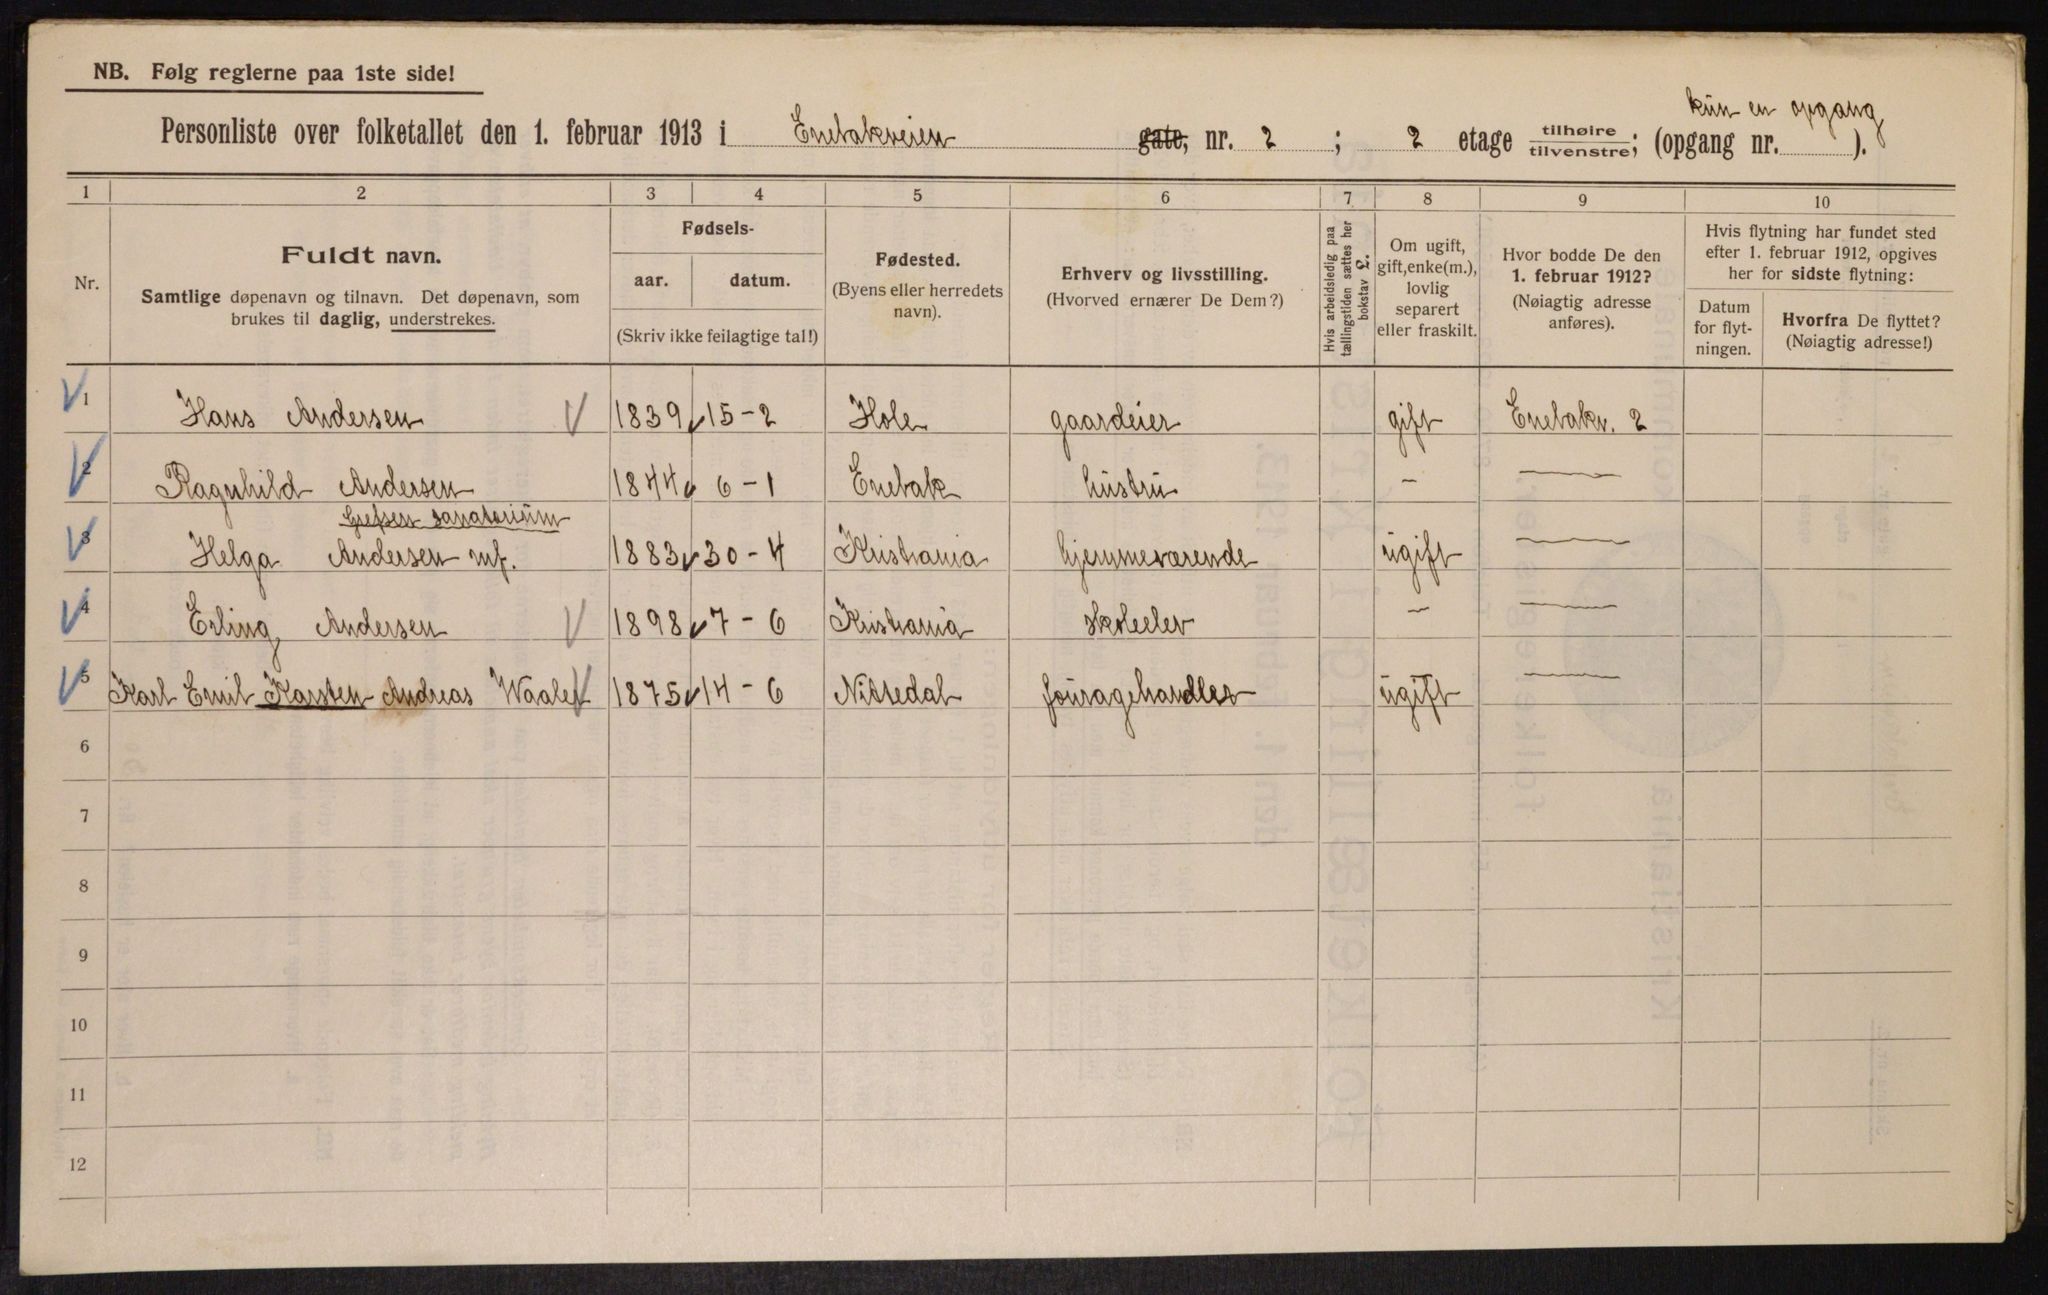 NB. Følg reglerne paa 1ste side!
kun en opgang
Personliste over folketallet den 1. februar 1913 i Enebakveien gate, nr. 2 ; 2 etage tilhøire tilvenstre; (opgang nr. ).
1 2 3 4 5 6 7 8 9 10
Nr.
Fuldt navn.
Samtlige døpenavn og tilnavn. Det døpenavn, som
brukes til daglig, understrekes.
Fødsels-
aar. datum.
(Skriv ikke feilagtige tal!)
Fødested.
(Byens eller herredets
navn).
Erhverv og livsstilling.
(Hvorved ernærer De Dem?)
Hvis arbeidsledig paa
tællingstiden sættes her
bokstav L.
Om ugift,
gift, enke(m.),
lovlig
separert
eller fraskilt.
Hvor bodde De den
1. februar 1912?
(Nøiagtig adresse
anføres).
Hvis flytning har fundet sted
efter 1. februar 1912, opgives
her for sidste flytning:
Datum
for flyt-
ningen.
Hvorfra De flyttet?
(Nøiagtig adresse!)
1 Hans Andersen 1839 15-2 Hole gaardeier gift Enebakv. 2
2 Ragnhild Andersen 1844 6-1 Enebak hustru - -
Grefsen sanatorium
3 Helga Andersen mf. 1883 30-4 Kristiania hjemmeværende ugift -
4 Erling Andersen 1898 7-6 Kristiania skoleelev - -
5 Karl Emil Karsten Andreas Waaler 1875 14-6 Nittedal fouragehandler ugift -
6
7
8
9
10
11
12